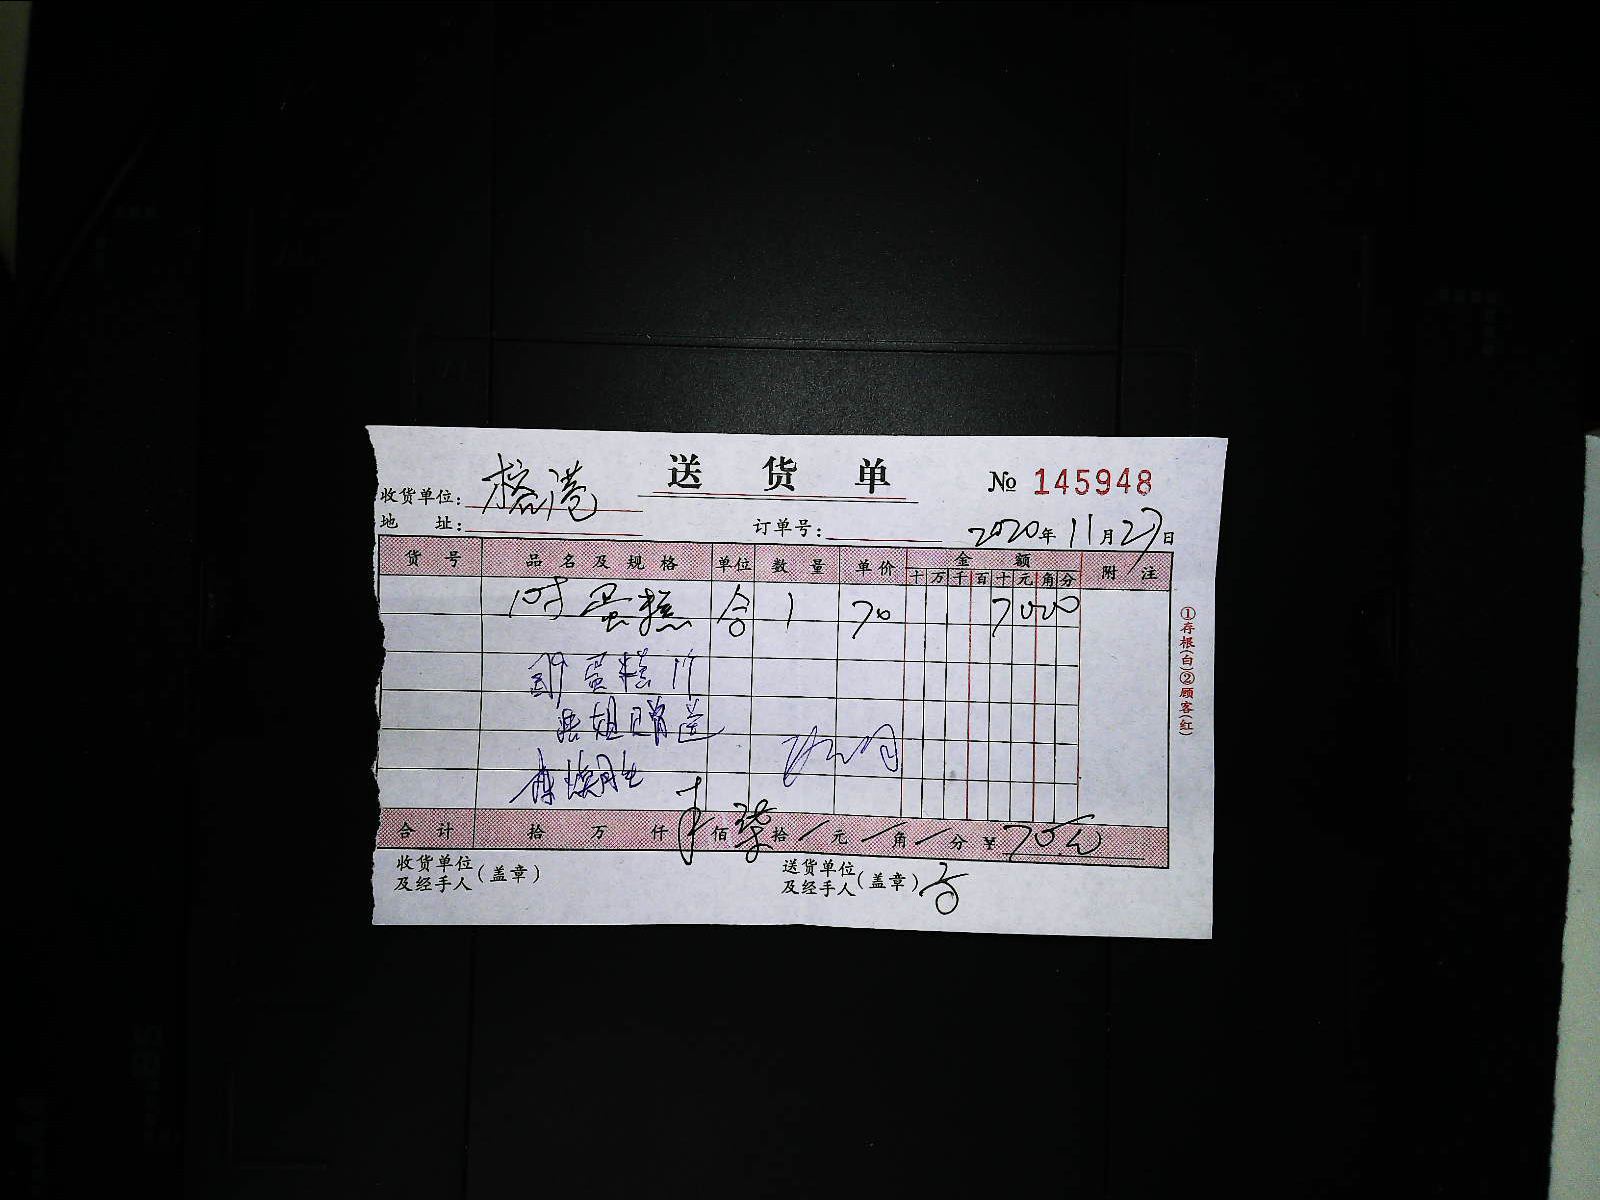 送 货 单
№ 145948
收货单位: 榕港
地 址:
订单号:
2020年11月27日
货 号 品 名 及 规 格 单位 数 量 单 价 金 额 附 注
十 万 千 百 十 元 角 分
10寸蛋糕 合 1 70 7000
蛋糕1个
姐 赠送
合 计 拾 万 仟 佰 柒 拾 / 元 / 角 / 分 ¥ 70元
收货单位
及经手人 (盖章)
送货单位
及经手人 (盖章)
①存根(白)②顾客(红)